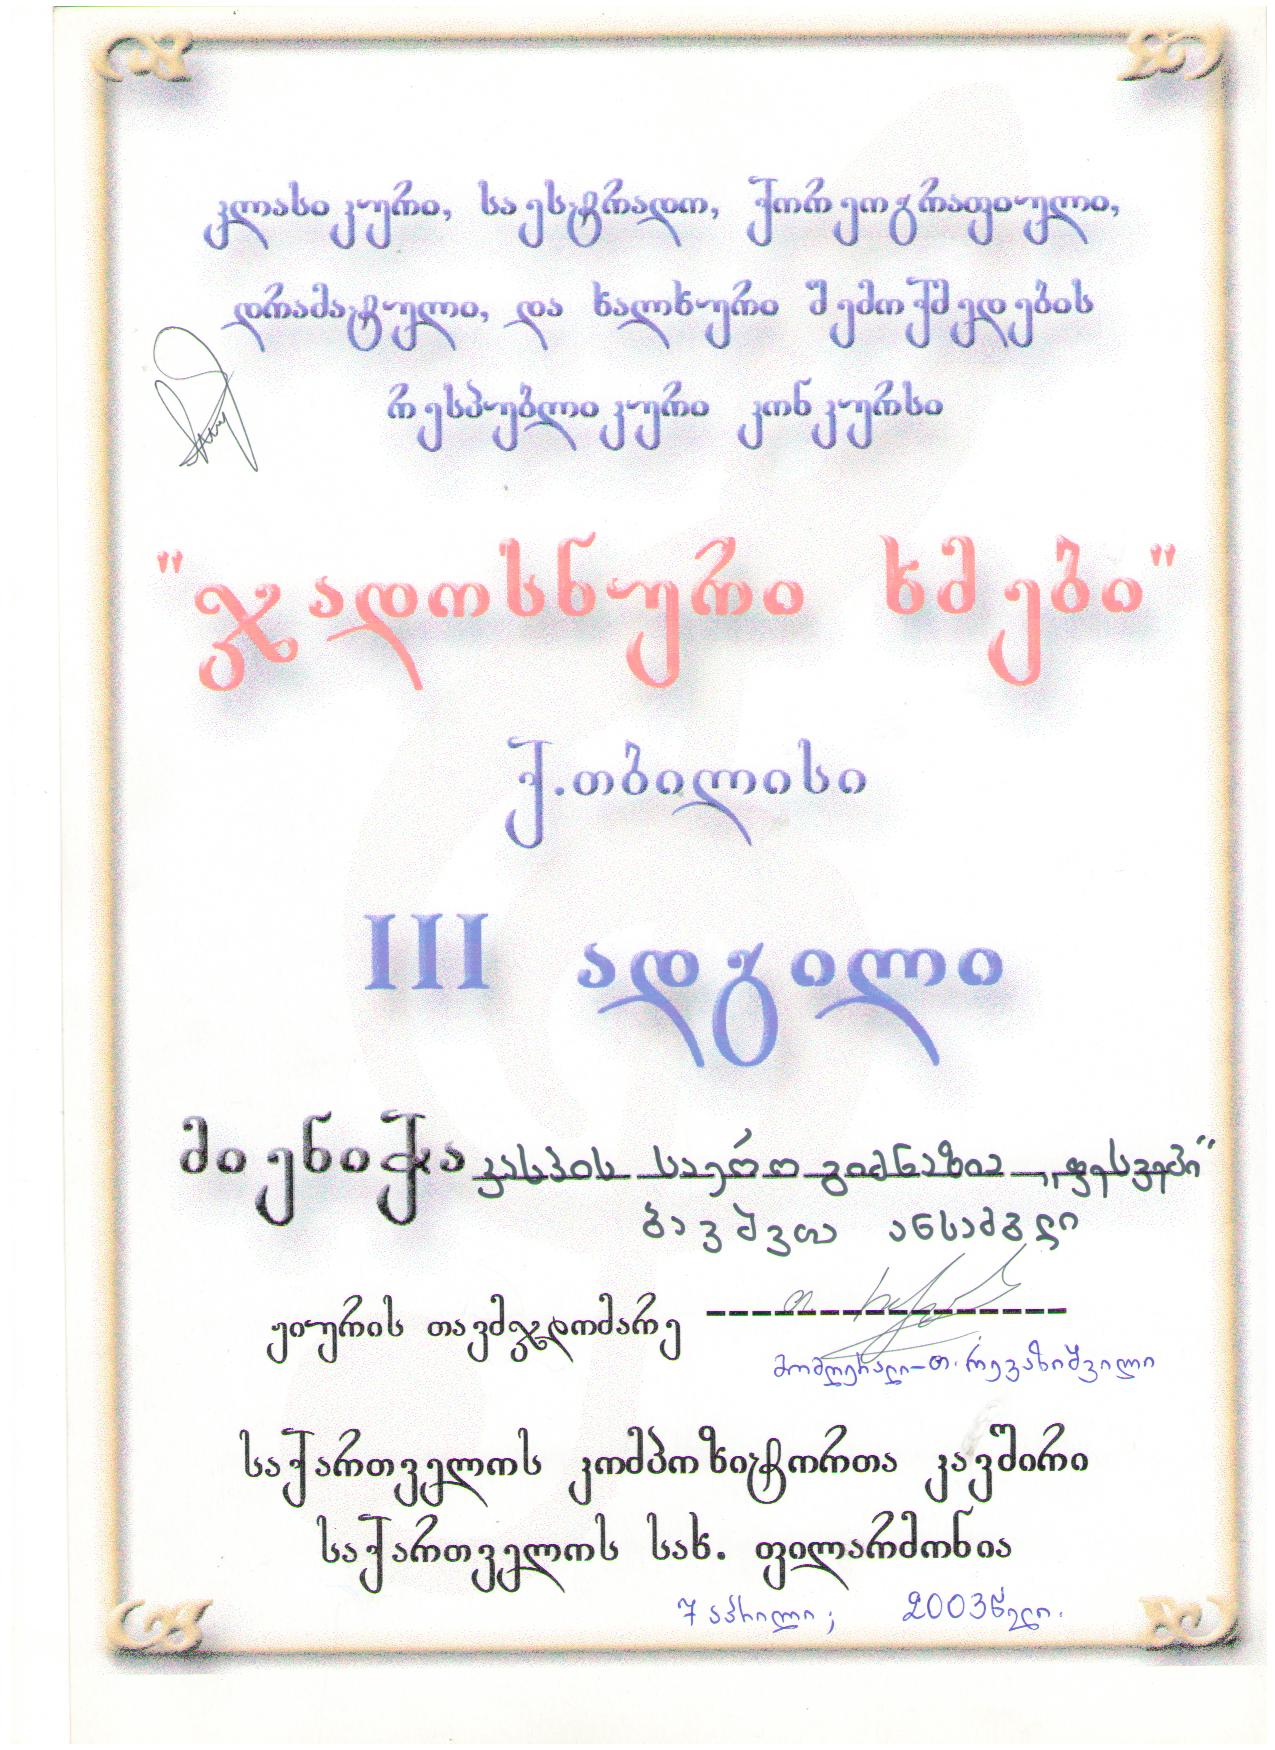 კლასიკური, საესტრადო, ქორეოგრაფიული,
დრამატული, და ხალხური შემოქმედების
რესპუბლიკური კონკურსი
"ჯადოსნური ხმები"
ქ.თბილისი
III ადგილი
მიენიჭა კასპის საერო გიმნაზია „ფესვები"
ბავშვთა ანსამბლი
ჟიურის თავმჯდომარე
მომღერალი-თ. რევაზიშვილი
საქართველოს კომპოზიტორთა კავშირი
საქართველოს სახ. ფილარმონია
7 აპრილი; 2003 წელი.